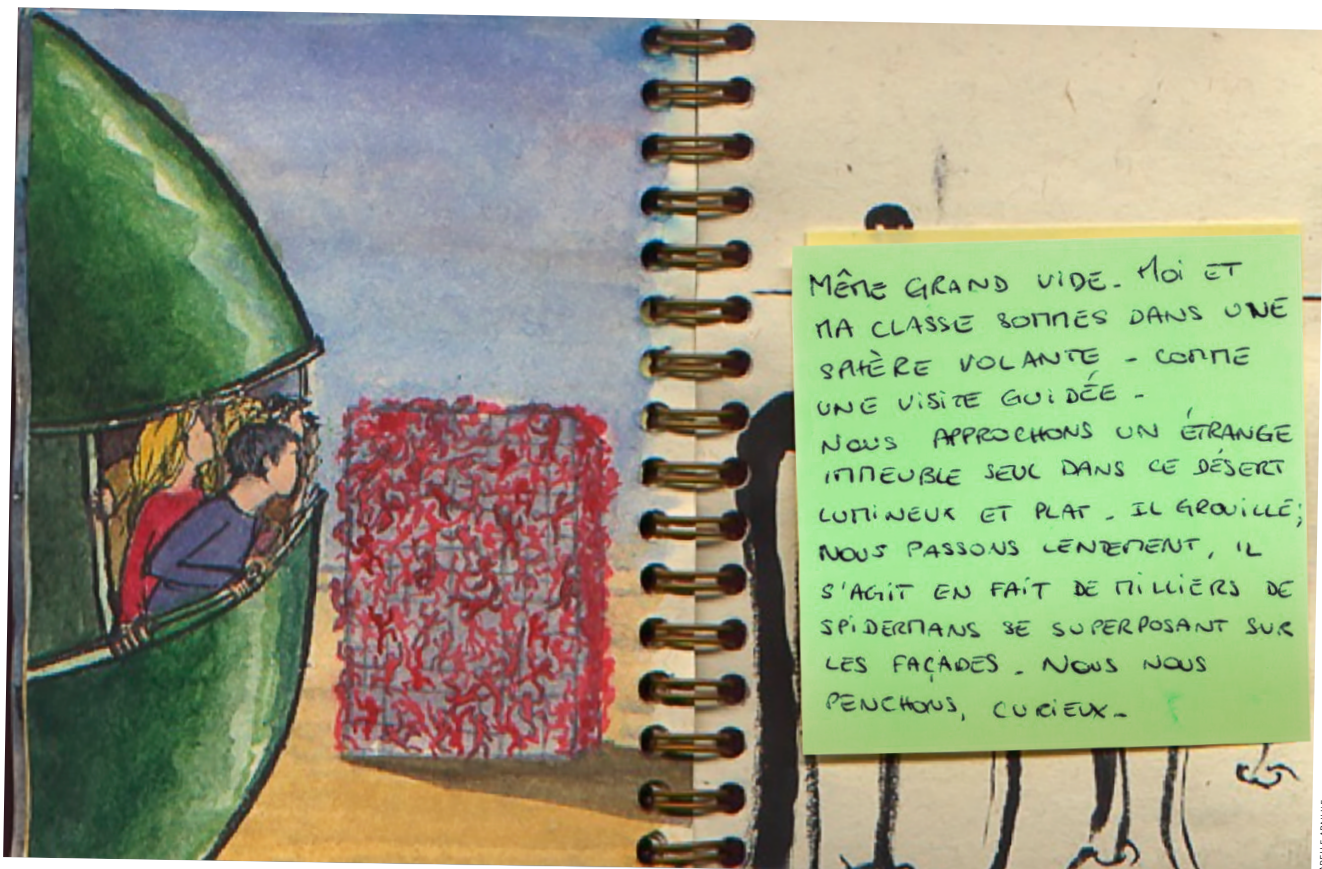 MÊME GRAND VIDE. MOI ET
MA CLASSE SOMMES DANS UNE
SPHÈRE VOLANTE - COMME
UNE VISITE GUIDÉE -
NOUS APPROCHONS UN ÉTRANGE
IMMEUBLE SEUL DANS CE DÉSERT
LUMINEUX ET PLAT. IL GROUILLE;
NOUS PASSONS LENTEMENT, IL
S'AGIT EN FAIT DE MILLIERS DE
SPIDERMANS SE SUPERPOSANT SUR
LES FAÇADES. NOUS NOUS
PENCHONS, CURIEUX-